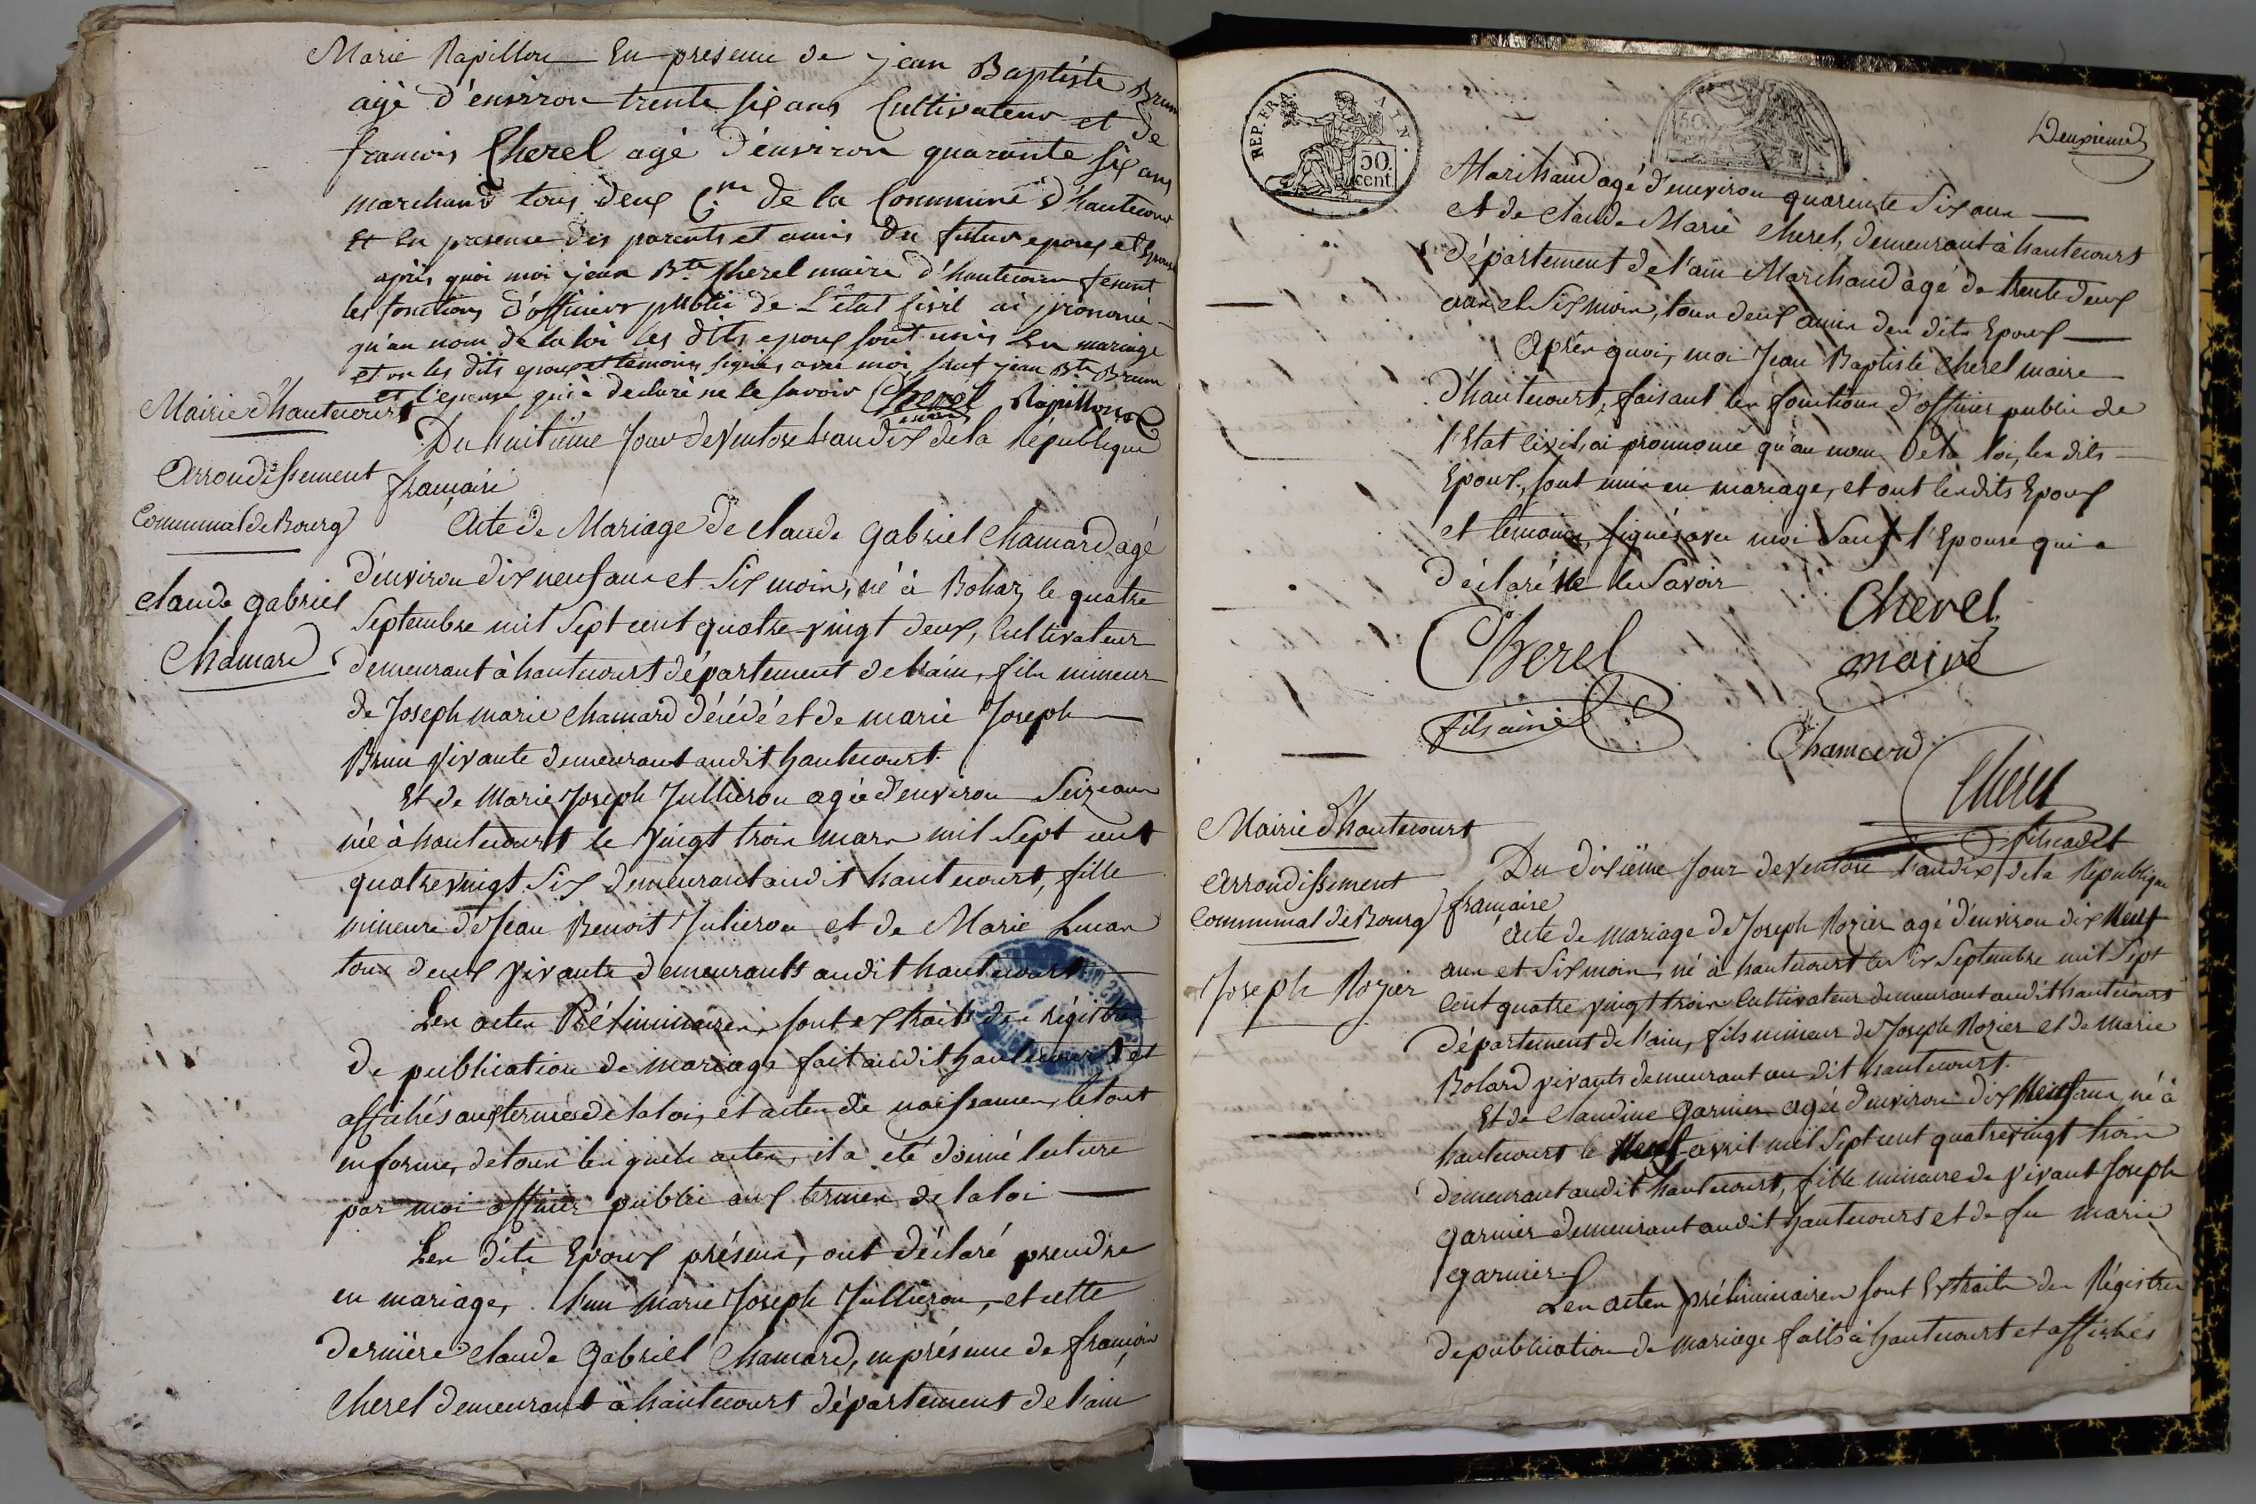 Marie Rapillon En presence de jean Baptiste Brun
agé d'environ trente six ans Cultivateur et de
francois Cherel agé d'environ quarante six ans
marchand tous deux C.en de la Commune d'hautecour
Et En presence des parents et amis du futur epoux et Epouse
après quoi moi jean Bte Cherel maire d'hautecour fesant
les fonctions d'officier public de L'état civil ai prononcé
qu'au nom de la loi les dits epoux sont unis En mariage
et on les dits epoux et temoins signés avec moi sauf jean Bte Brun
et l'epouse qui a declaré ne le savoir Cherel Rapillon
maire
Mairie d'hautecourt
Arrondissement
Communal de Bourg
Claude Gabriel
Chamard
Du huitième Jour de Ventose L'an dix de la République
française
Acte de Mariage de Claude Gabriel Chamard agé
d'environ dix neuf ans et Six mois, né à Bohaz le quatre
Septembre mil Sept cent quatre vingt deux, Cultivateur
demeurant à hautecourt département de l'ain, fils mineur
de Joseph marie Chamard décédé et de marie Joseph
Brun vivante demeurant audit hautecourt.
Et de Marie Joseph Jullieron agée d'environ Seize ans
née à hautecourt le vingt trois mars mil Sept cent
quatre vingt Six demeurant audit hautecourt, fille
mineure de Jean Benoit Julieron et de Marie Lucas
tous deux vivants demeurants audit hautecourt
Les actes Préliminaires, sont extraits des régistres
de publication de mariage fait audit hautecourt et
affichés aux termes de la loi, et actes de naissances, le tout
en forme, de tous les quels actes, il a été donné lecture
par moi officier public aux termes de la loi
Les dits Epoux présens, ont déclaré prendre
en mariage, l'un Marie Joseph Jullieron, et cette
dernière Claude Gabriel Chamard, en présence de françois
Cherel demeurant à hautecourt département de l'ain
REP. FRA. AIN.
50. cent.
Deuxieme
Marchand agé d'environ quarente Six ans
et de Claude Marie Cherel, demeurant à hautecourt
département de l'ain Marchand agé de trente deux
ans et Six mois, tous deux amis des dits Epoux
Après quoi, moi Jean Baptiste Cherel maire
d'hautecourt, faisant les fonctions d'officier public de
l'Etat civil, ai prononcé qu'au nom de la loi, les dits
Epoux, sont unis en mariage, et ont les dits Epoux
et témoins, signés avec moi Sauf l'Epouse qui a
déclaré Ne le Savoir
Cherel
maire
Cherel
fils ainé
Chamard
Cherel
fils cadet
Mairie d'hautecourt
Arrondissement
Communal de Bourg
Joseph Rozier
Du dixième Jour de Ventose l'an dix de la République
française
Acte de mariage de Joseph Rozier agé d'environ dix Neuf
ans et Six mois, né à hautecourt le Six Septembre mil Sept
Cent quatre vingt trois Cultivateur demeurant audit hautecourt
département de l'ain, fils mineur de Joseph Rozier et de Marie
Bolard vivants demeurant au dit hautecourt.
Et de Claudine Garnier agée d'environ dix Neuf ans, né à
hautecourt le Neuf avril mil Sept cent quatre vingt trois
demeurant audit hautecourt, fille mineure de vivant Joseph
Garnier demeurant audit hautecourt et de feu marie
Garnier.
Les actes préliminaires sont Extraits des Régistres
de publication de mariage faits à hautecourt et affichés